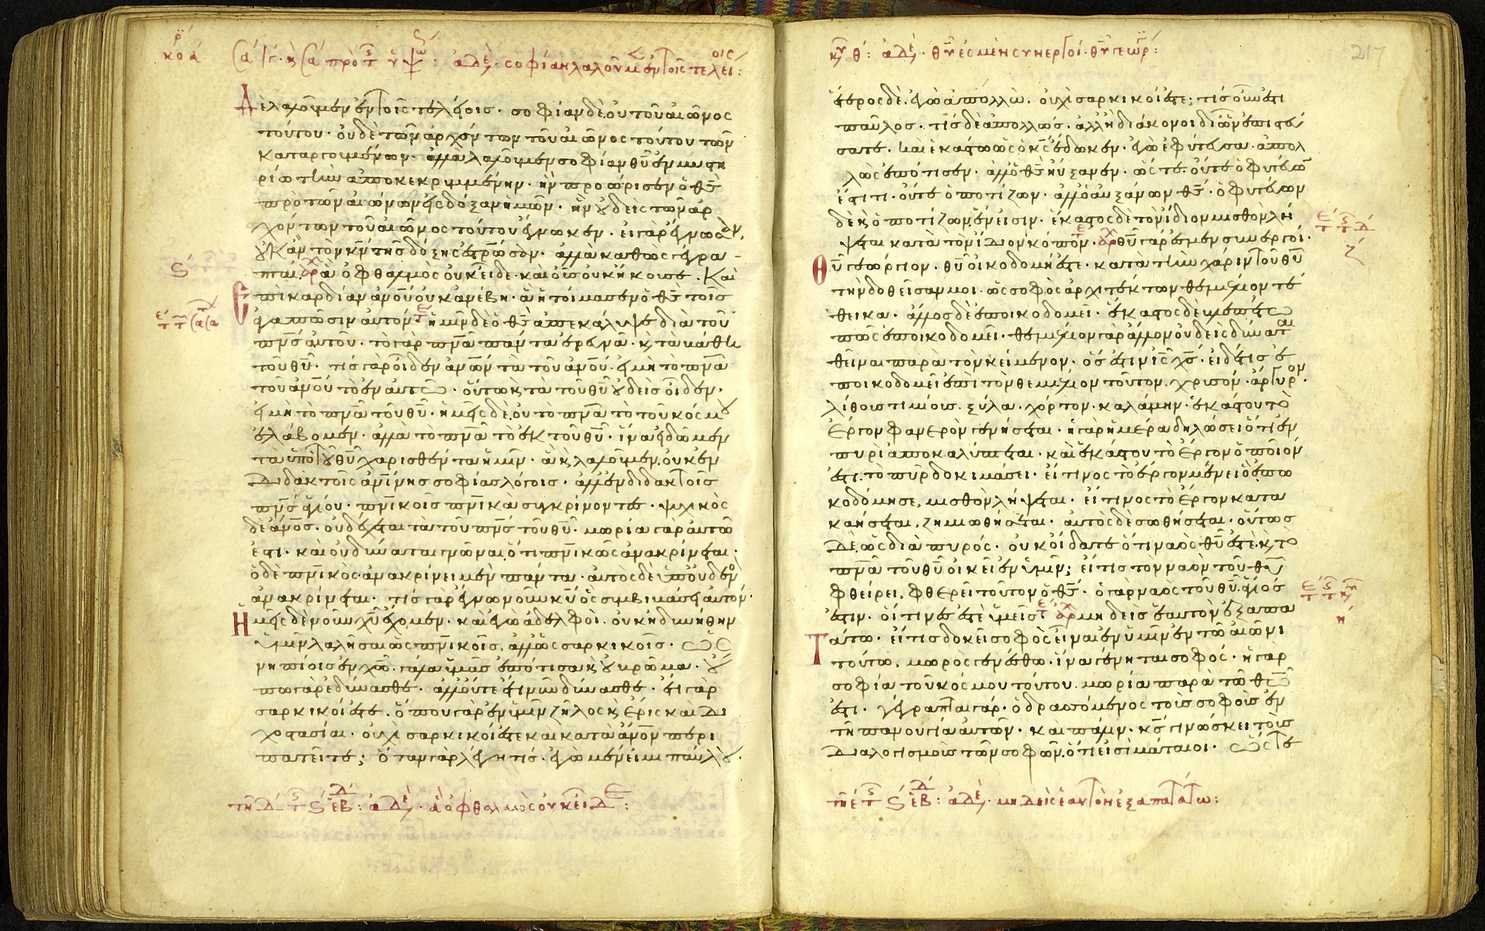 ϛα ιϛ. κ ϛα πρὸ τ ὑψώσ: ἀδελ. σοφίαν λαλοῦμεν ἐν τοῖς τελείοις:
Δὲ λαλοῦμεν ἐν τοῖς τελείοις. σοφίαν δὲ, οὐ τοῦ αἰῶνος
τούτου. οὐδὲ τῶν ἀρχόντων τοῦ αἰῶνος τούτου τῶν
καταργουμένων. ἀλλὰ λαλοῦμεν σοφίαν θυ̅ ἐν μυστη
ρίω τὴν ἀποκεκρυμμένην. ἣν προώρισεν ὁ θς̅
πρὸ τῶν αἰώνων εἰς δόξαν ἡμῶν. ἣν οὐδεὶς τῶν ἀρ
χόντων τοῦ αἰῶνος τούτου ἔγνωκεν. εἰ γὰρ ἔγνωσαν,
οὐκ ἂν τὸν κν̅ τῆς δόξης ἐστρωσαν. ἀλλὰ καθὼς γέγρα
πται ἃ ὀφθαλμὸς οὐκ εἶδε. καὶ οὖς οὐκ ἤκουσε. καὶ
ἐπὶ καρδίαν ἀνου̅ οὐκ ἀνέβη. ἃ ἡτοίμασεν ὁ θς̅ τοῖς
ἀγαπῶσιν αὐτόν. ἡμῖν δὲ ὁ θς̅ ἀπεκάλυψε διὰ τοῦ
πνς̅ αὐτοῦ. τὸ γὰρ πνα̅ πάντα ἐρευνᾶ. κ τὰ βάθη
τοῦ θυ̅. τίς γὰρ οἶδεν ἀνων̅ τὰ τοῦ ἀνου̅. εἰ μὴ τὸ πνα̅
τοῦ ἀνου̅ τὸ ἐν αὐτῶ. οὕτω κ τὰ τοῦ θυ̅ οὐδεὶς οἶδεν.
εἰ μὴ τὸ πνα̅ τοῦ θυ̅. ἡμεῖς δὲ, οὐ τὸ πνα̅ τὸ τοῦ κόσμου
ἐλάβομεν. ἀλλὰ τὸ πνα̅ τὸ ἐκ τοῦ θυ̅. ἵνα εἰδῶμεν
τὰ ὑπὸ τοῦ θυ̅ χαρισθέντα ἡμῖν. ἃ κ λαλοῦμεν, οὐκ ἐν
διδακτοῖς ἀνίνης σοφίας λόγοις. ἀλλ' ἐν διδακτοῖς
πνς̅ ἁγίου. πνικοῖς πνικὰ συγκρίνοντες. ψυχικὸς
δὲ ἀνος̅. οὐ δέχεται τὰ τοῦ πνς̅ τοῦ θυ̅. μωρία γὰρ αὐτῶ
ἐστι. καὶ οὐ δύναται γνῶναι ὅτι πνικῶς ἀνακρίνεται.
ὁ δὲ πνικὸς ἀνακρίνει μὲν πάντα. αὐτὸς δὲ ὑπ' οὐδενὸς
ἀνακρίνεται. τίς γὰρ ἔγνω νουν κυ̅ ὃς συμβιβάσει αὐτόν.
Ἡμεῖς δὲ νουν χυ̅ ἔχομεν. καὶ ἐγὼ ἀδελφοὶ. οὐκ ἠδυνήθην
ὑμῖν λαλῆσαι ὡς πνικοῖς, ἀλλ' ὡς σαρκικοῖς. ὡς
νηπίοις ἐν χω̅. γάλα ὑμᾶς ἐπότισα κ οὐ βρῶμα. οὔ
πω γὰρ ἐδύνασθε. ἀλλ' οὔτε ἔτι νῦν δύνασθε. ἔτι γὰρ
σαρκικοί ἐστε. ὅπου γὰρ ἐν ὑμῖν ζῆλος κ ἔρις καὶ δι
χοστασίαι. οὐχὶ σαρκικοί ἐστε καὶ κατὰ ἀνον̅ περι
πατεῖτε; ὅταν γὰρ λέγη τις. ἐγὼ μέν εἰμι παύλου.
τῆ Δ τ ϛ ἑβ: ἀδελ. ἃ ὀφθαλμὸς οὐκ εἶδε:
κυ θ: ἀδελ. θυ̅ ἐσμὲν συνεργοί. θυ̅ γεώρ:
217
ἕτερος δὲ. ἐγὼ ἀπολλὼ. οὐχὶ σαρκικοί ἐστε; τίς οὖν ἐστι
παῦλος. τίς δὲ ἀπολλώς. ἀλλ' ἢ διάκονοι δι' ὧν ἐπιστεύ
σατε. καὶ ἑκάστω ὡς ὁ κς̅ ἔδωκεν. ἐγὼ ἐφύτευσα. ἀπολ
λὼς ἐπότισεν. ἀλλ' ὁ θς̅ ηὔξανεν. ὥστε οὔτε ὁ φυτεύων
ἐστί τι. οὔτε ὁ ποτίζων. ἀλλ' ὁ αὐξάνων θς̅. ὁ φυτεύων
δὲ κ ὁ ποτίζων ἕν εἰσιν. ἕκαστος δὲ τὸν ἴδιον μισθὸν λή
ψεται κατὰ τὸν ἴδιον κόπον. θυ̅ γάρ ἐσμεν συνεργοί.
Θυ̅ γεώργιον. θυ̅ οἰκοδομή ἐστε. κατὰ τὴν χάριν τοῦ θυ̅
τὴν δοθεῖσαν μοι. ὡς σοφὸς ἀρχιτέκτων θεμέλιον τέ
θεικα. ἄλλος δὲ ἐποικοδομεῖ. ἕκαστος δὲ βλεπέτω
πῶς ἐποικοδομεῖ. θεμέλιον γὰρ ἄλλον οὐδεὶς δύναται
θεῖναι παρὰ τὸν κείμενον. ὅς ἐστιν ις̅ χς̅. εἰ δέ τις ἐ
ποικοδομεῖ ἐπὶ τὸν θεμέλιον τοῦτον. χρυσόν. ἄργυρον.
λίθους τιμίους. ξύλα. χόρτον. καλάμην. ἑκάστου τὸ
ἔργον φανερὸν γενήσεται. ἡ γὰρ ἡμέρα δηλώσει ὅτι ἐν
πυρὶ ἀποκαλύπτεται. καὶ ἑκάστου τὸ ἔργον ὁποῖόν
ἐστι. τὸ πῦρ δοκιμάσει. εἴ τινος τὸ ἔργον μένει ὃ ἐπω
κοδόμησε, μισθὸν λήψεται. εἴ τινος τὸ ἔργον κατα
καήσεται, ζημιωθήσεται. αὐτὸς δὲ σωθήσεται. οὕτως
δὲ, ὡς διὰ πυρός. οὐκ οἴδατε ὅτι ναὸς θυ̅ ἐστὲ. κ τὸ
πνα̅ τοῦ θυ̅ οἰκεῖ ἐν ὑμῖν; εἴ τις τὸν ναὸν τοῦ θυ̅
φθείρει, φθερεῖ τοῦτον ὁ θς̅. ὁ γὰρ ναὸς τοῦ θυ̅ ἅγιός
ἐστιν. οἵτινές ἐστε ὑμεῖς μηδεὶς ἑαυτὸν ἐξαπα
Τάτω. εἴ τις δοκεῖ σοφὸς εἶναι ἐν ὑμῖν ἐν τῶ αἰῶνι
τούτω, μωρὸς γενέσθω. ἵνα γένηται σοφός. ἡ γὰρ
σοφία τοῦ κόσμου τούτου. μωρία παρὰ τῶ θω̅
ἐστι. γέγραπται γάρ. ὁ δρασσόμενος τοὺς σοφοὺς ἐν
τῆ πανουργία αὐτῶν. καὶ πάλιν. κς̅ γινώσκει τοὺς
διαλογισμοὺς τῶν σοφῶν. ὅτι εἰσὶ μάταιοι. ὥστε
τῆ ε τ ϛ ἑβ: ἀδελ. μηδεὶς ἑαυτὸν ἐξαπατάτω: